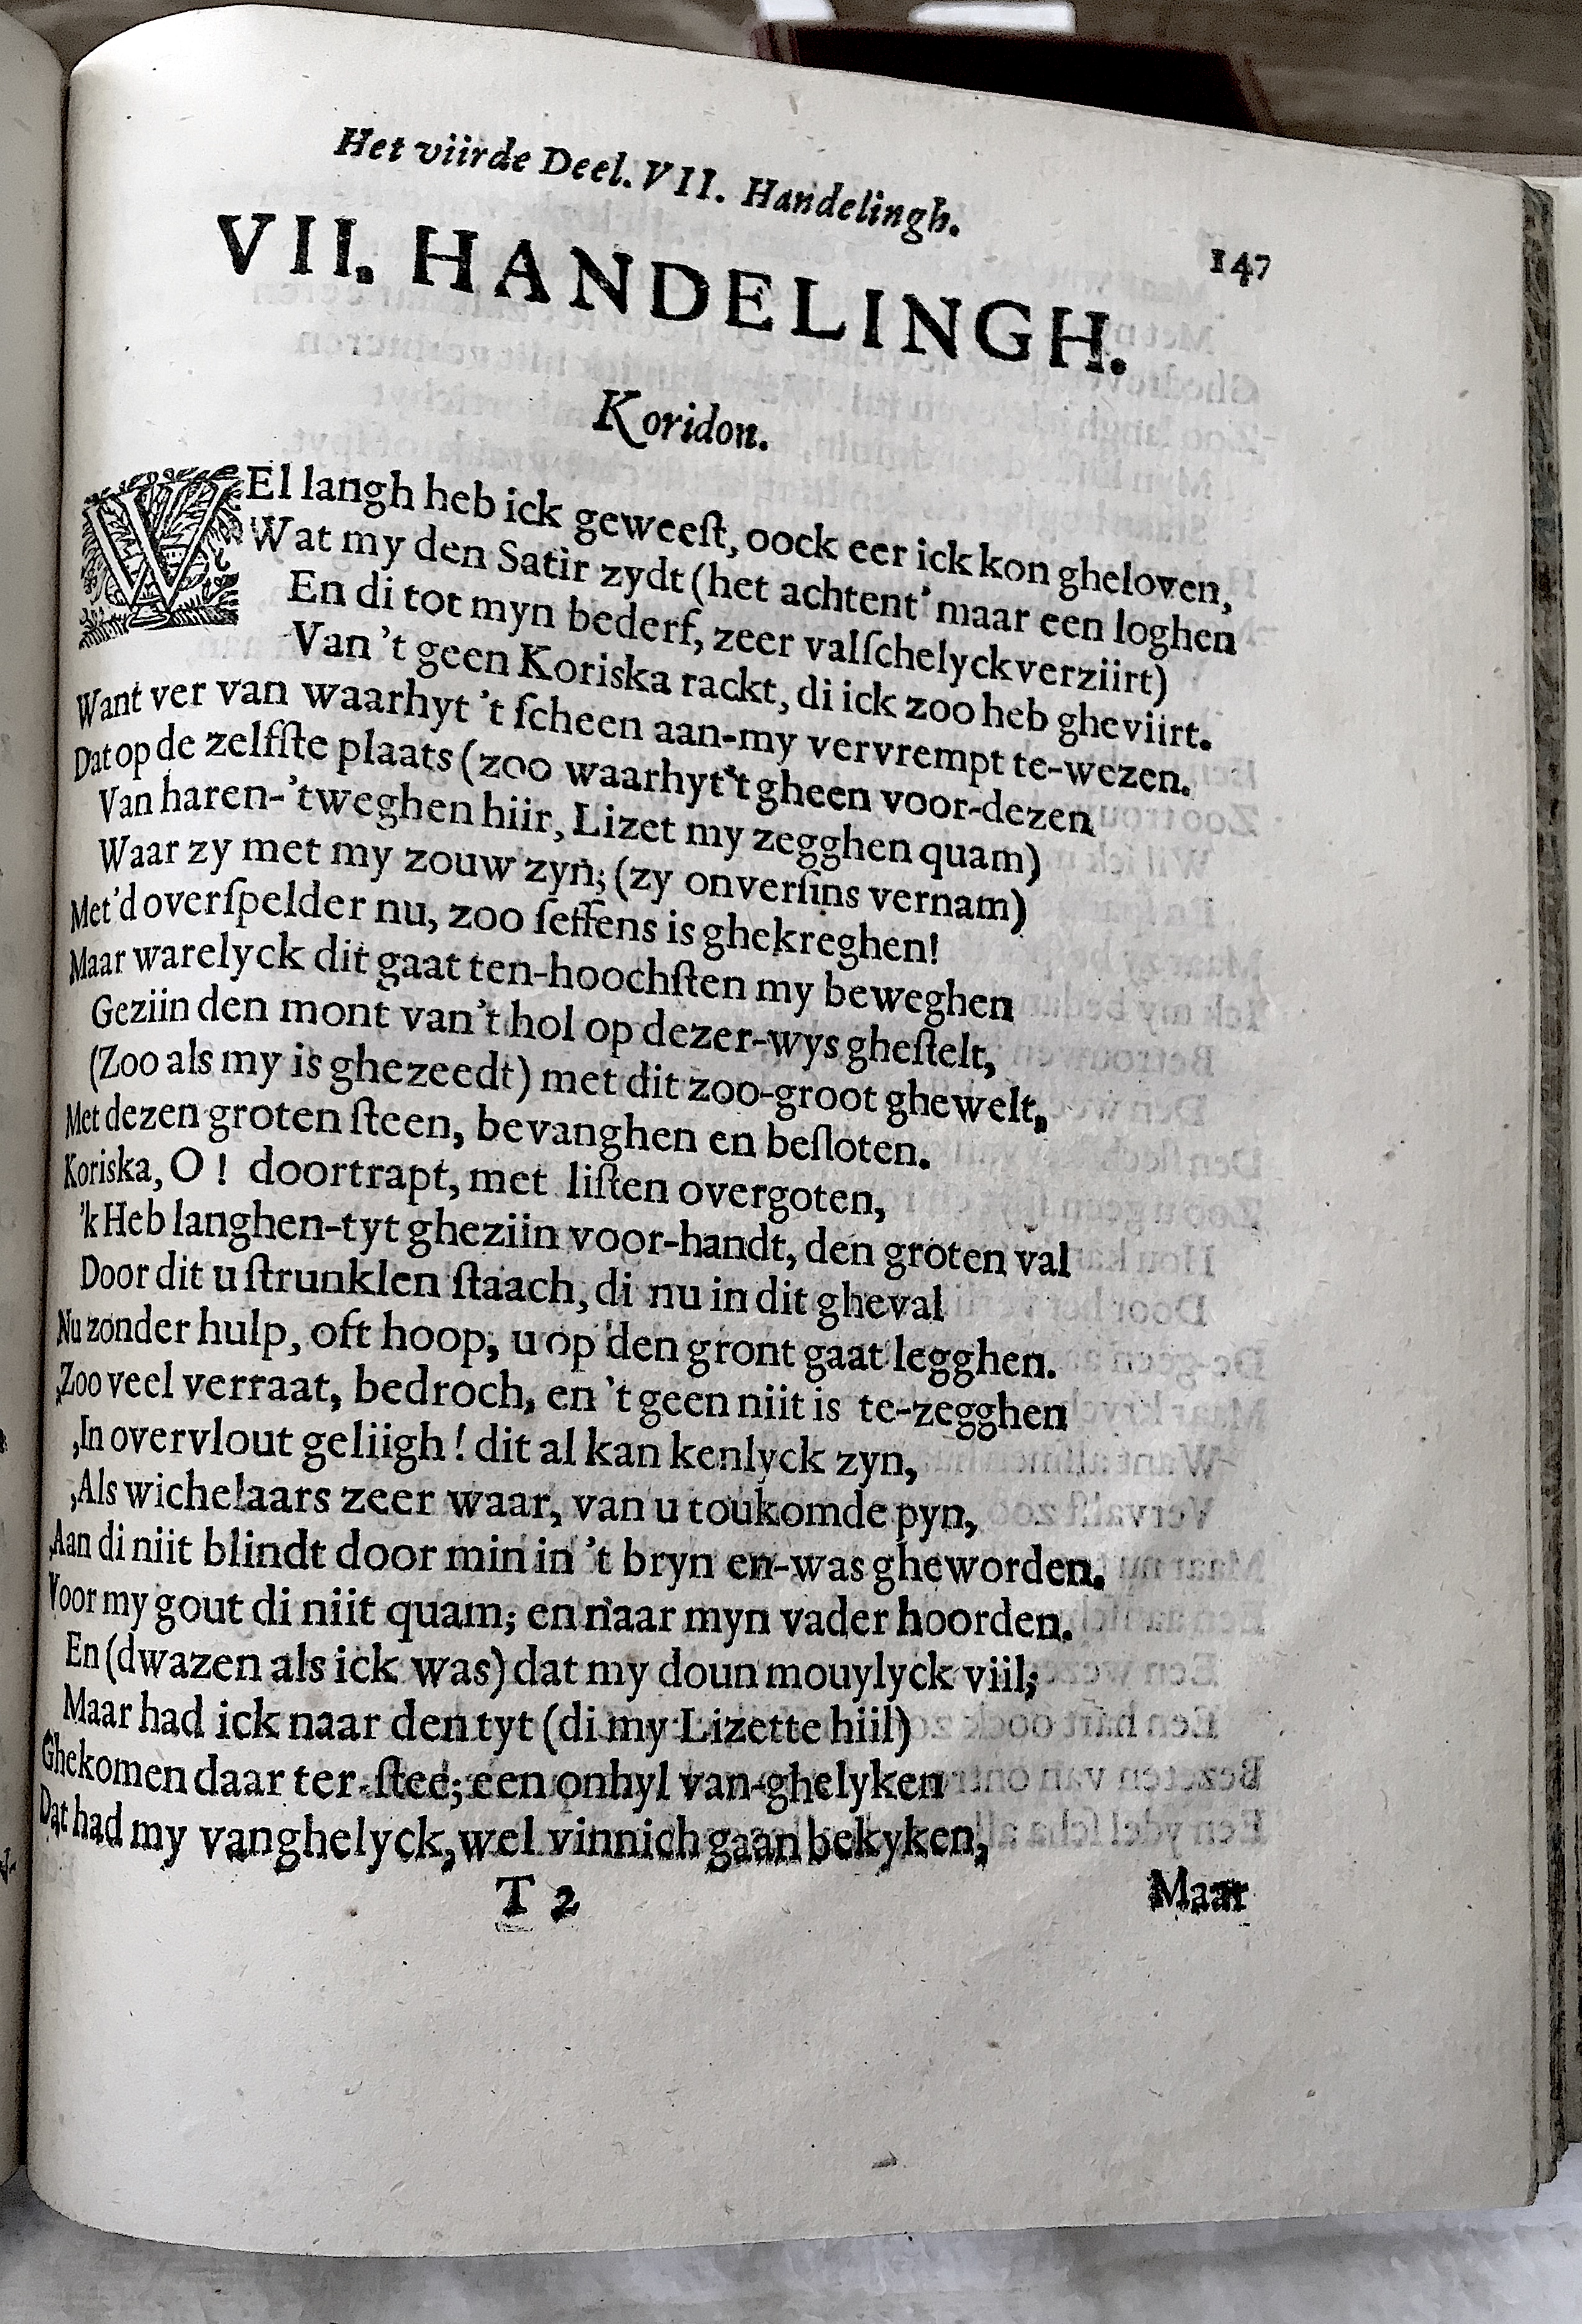 Het viirde Deel. VII. Handelingh.
147
VII. HANDELINGH.
Koridon.
VEl langh heb ick geweeſt, oock eer ick kon gheloven,
Wat my den Satir zydt (het achtent' maar een loghen
En di tot myn bederf, zeer valſchelyck verziirt)
Van 't geen Koriska rackt, di ick zoo heb gheviirt.
Want ver van waarhyt 't ſcheen aan-my vervrempt te-wezen.
Dat op de zelfſte plaats (zoo waarhyt 't gheen voor-dezen
Van haren-'tweghen hiir, Lizet my zegghen quam)
Waar zy met my zouw zyn; (zy onverſins vernam)
Met'd overſpelder nu, zoo ſeffens is ghekreghen!
Maar warelyck dit gaat ten-hoochſten my beweghen
Geziin den mont van't hol op dezer-wys gheſtelt,
(Zoo als my is ghezeedt) met dit zoo-groot ghewelt,
Met dezen groten ſteen, bevanghen en beſloten.
Koriska, O ! doortrapt, met liſten overgoten,
'k Heb langhen-tyt gheziin voor-handt, den groten val
Door dit u ſtrunklen ſtaach, di nu in dit gheval
Nu zonder hulp, oft hoop, u op den gront gaat legghen.
,Zoo veel verraat, bedroch, en 't geen niit is te-zegghen
,In overvlout geliigh ! dit al kan kenlyck zyn,
,Als wichelaars zeer waar, van u toukomde pyn,
,Aan di niit blindt door min in 't bryn en-was gheworden.
Voor my gout di niit quam; en naar myn vader hoorden.
En (dwazen als ick was) dat my doun mouylyck viil;
Maar had ick naar den tyt (di my Lizette hiil)
Ghekomen daar ter-ſtee; een onhyl van-ghelyken
Dat had my vanghelyck, wel vinnich gaan bekyken,
T 2
Maar